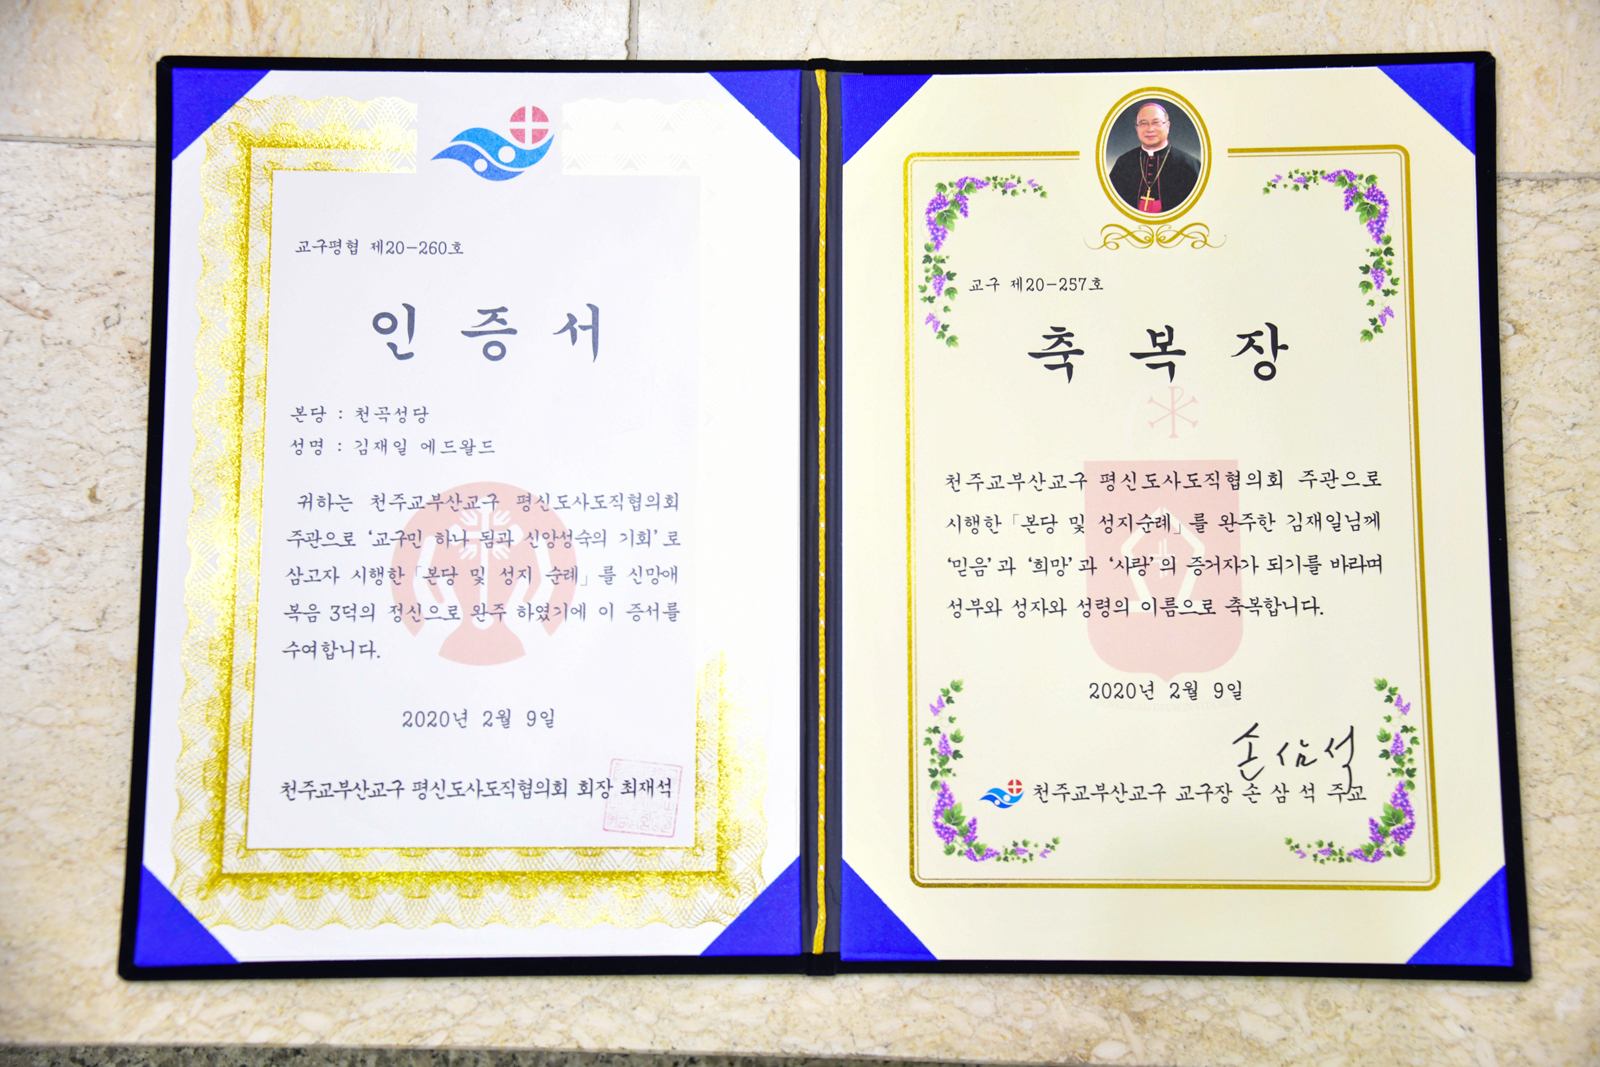 교구평협 제20-260호
인 증 서
본당 : 천곡성당
성명 : 김재일 에드왈드
귀하는 천주교부산교구 평신도사도직협의회
주관으로 '교구민 하나 됨과 신앙성숙의 기회'로
삼고자 시행한「본당 및 성지 순례」를 신망애
복음 3덕의 정신으로 완주 하였기에 이 증서를
수여합니다.
2020년 2월 9일
천주교부산교구 평신도사도직협의회 회장 최재석
교구 제20-257호
축 복 장
천주교부산교구 평신도사도직협의회 주관으로
시행한「본당 및 성지순례」를 완주한 김재일님께
'믿음'과 '희망'과 '사랑'의 증거자가 되기를 바라며
성부와 성자와 성령의 이름으로 축복합니다.
2020년 2월 9일
손삼석
천주교부산교구 교구장 손 삼 석 주교